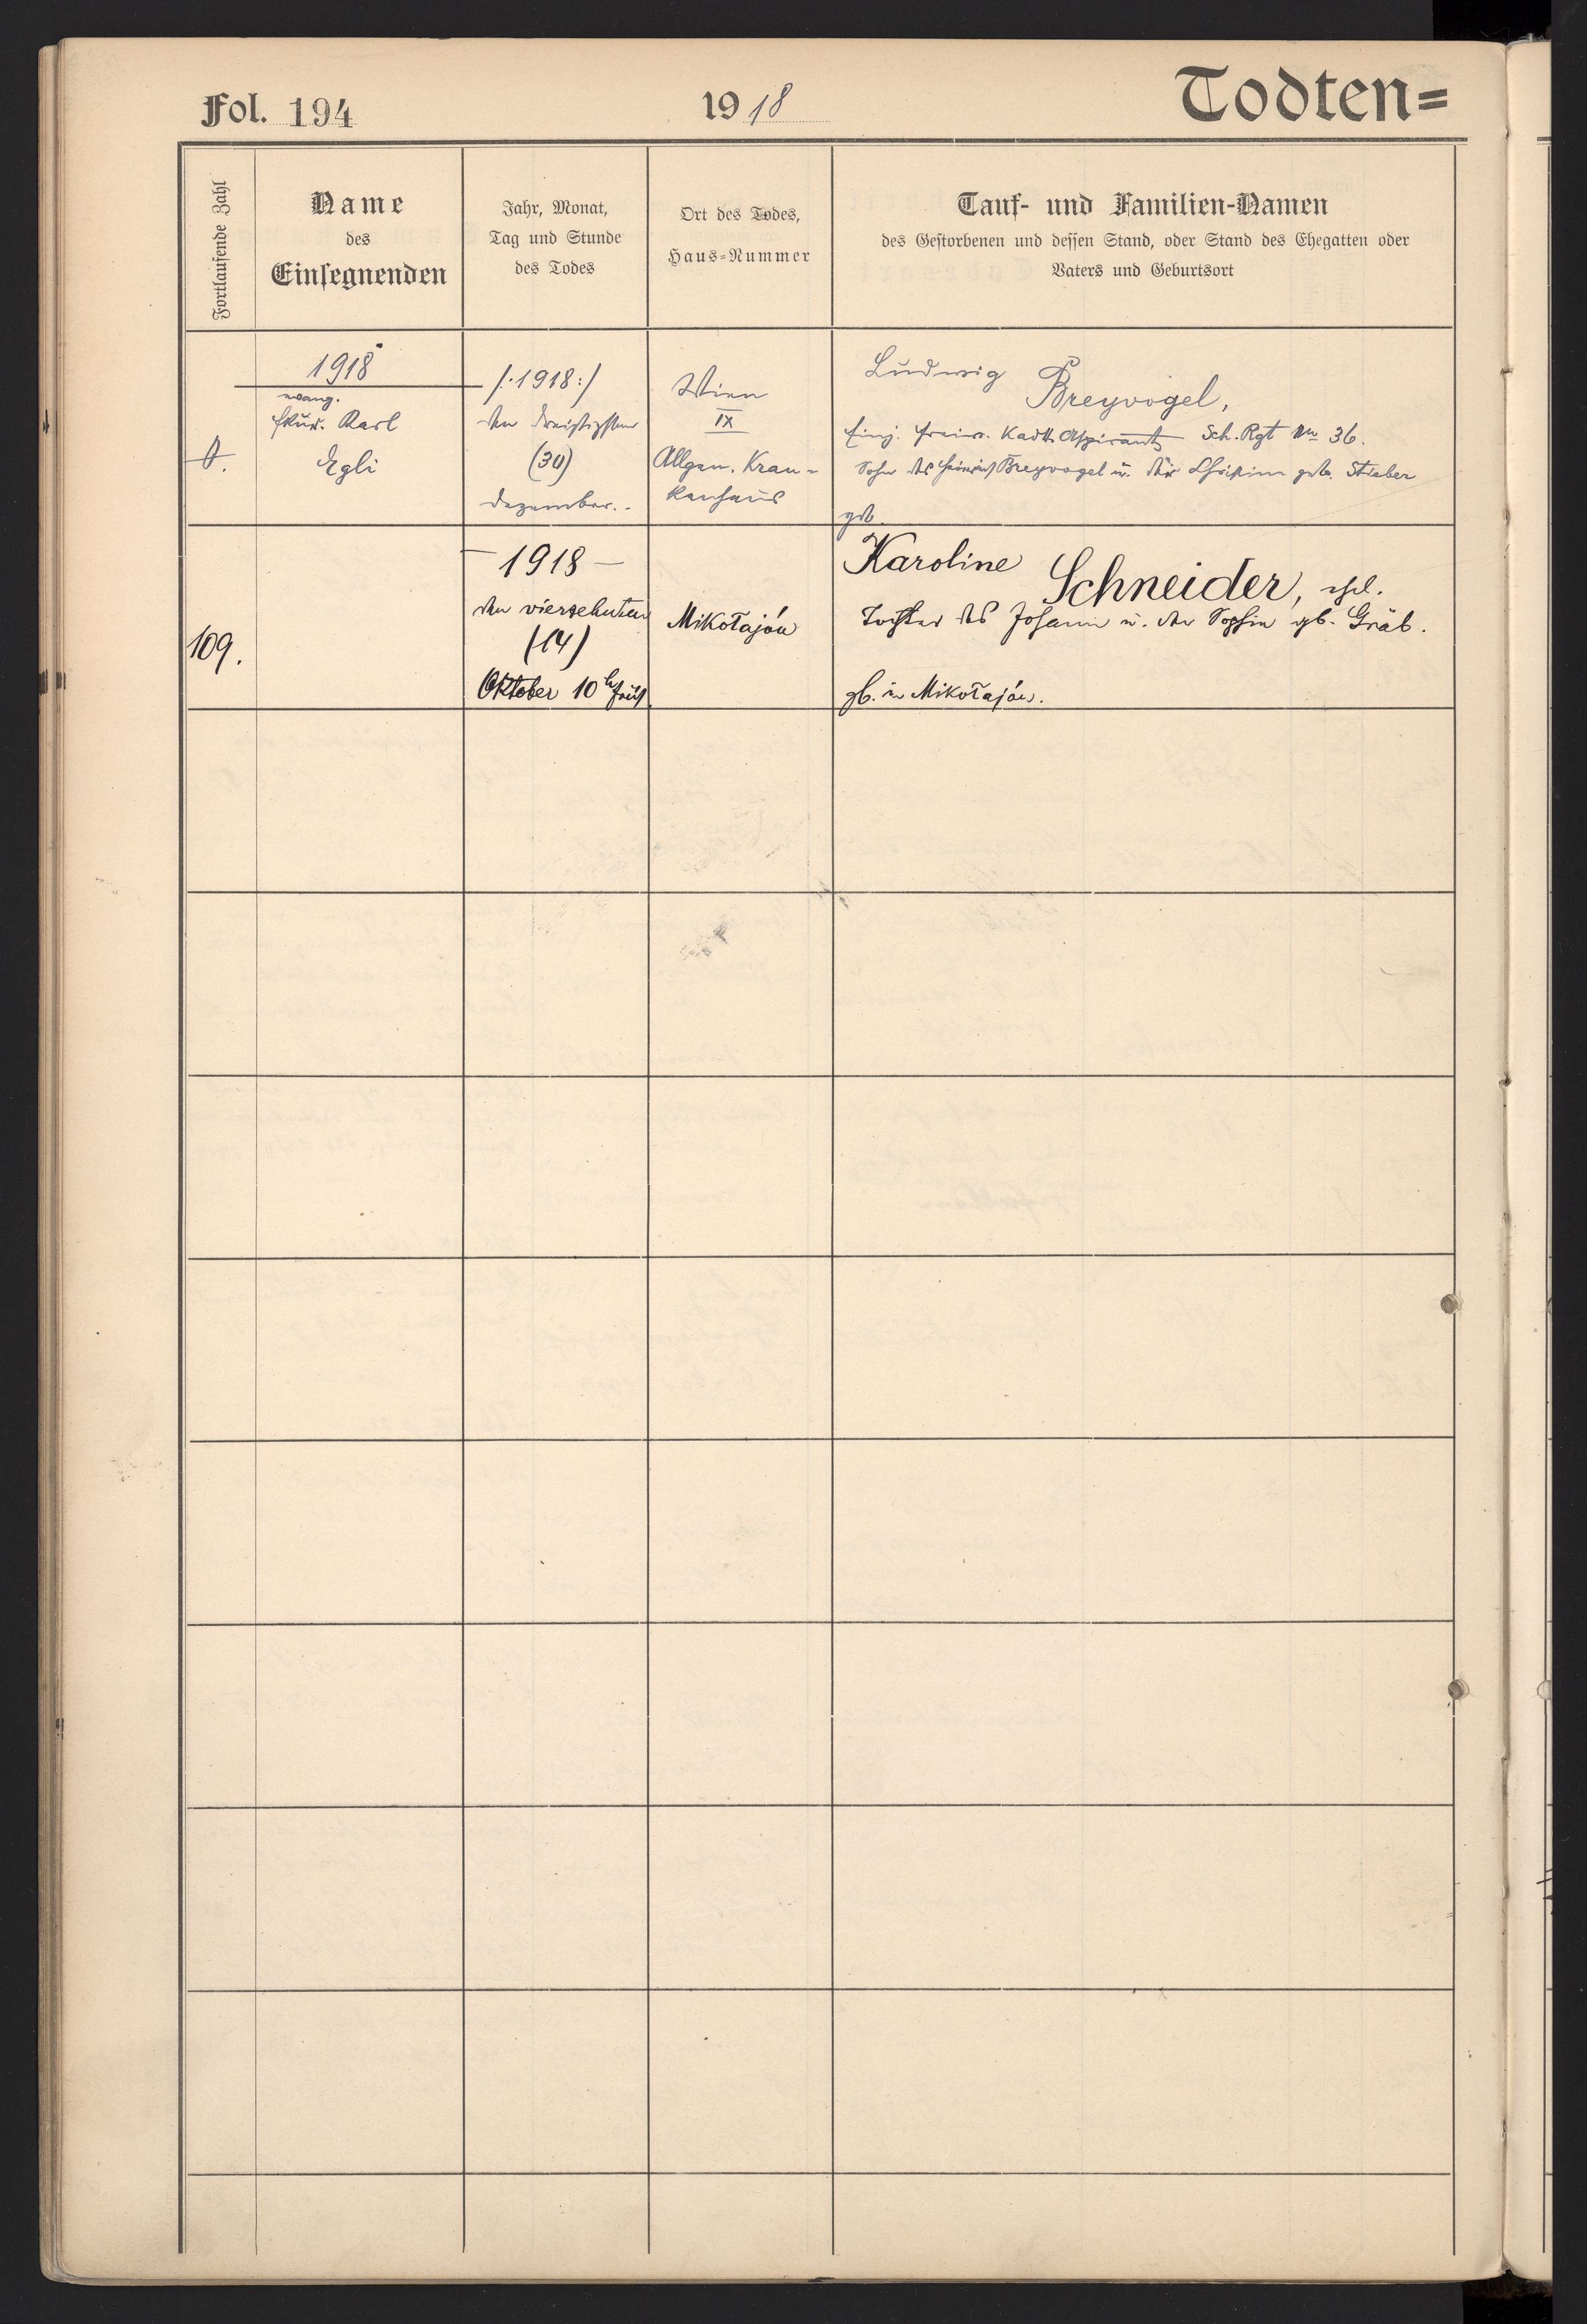 Fol. 194
1918
Todten=
Fortlaufende Zahl
Name
des
Einsegnenden
Jahr, Monat,
Tag und Stunde
des Todes
Ort des Todes,
Haus=Nummer
Tauf- und Familien-Namen
des Gestorbenen und dessen Stand, oder Stand des Ehegatten oder
Vaters und Geburtsort
1918
evang.
Karl
Egli
/:1918:/
den dreißigsten
(30)
Dezember.
Wien
IX
Allgem. Kran=
kenhaus
Ludwig
Breyvogel,
Einj. freiw. Kadtt. Aspirant Sch. Rgt No 36.
Sohn des Heinrich Breyvogel u. der geb. Stieber
geb.
109.
– 1918 –
den vierzehnten
(14)
Oktober 10 h früh
Mikołajów
Karoline
Schneider, ehel.
Tochter des Johann u. der Sophie gb. Gräb.
gb. in Mikołajów.